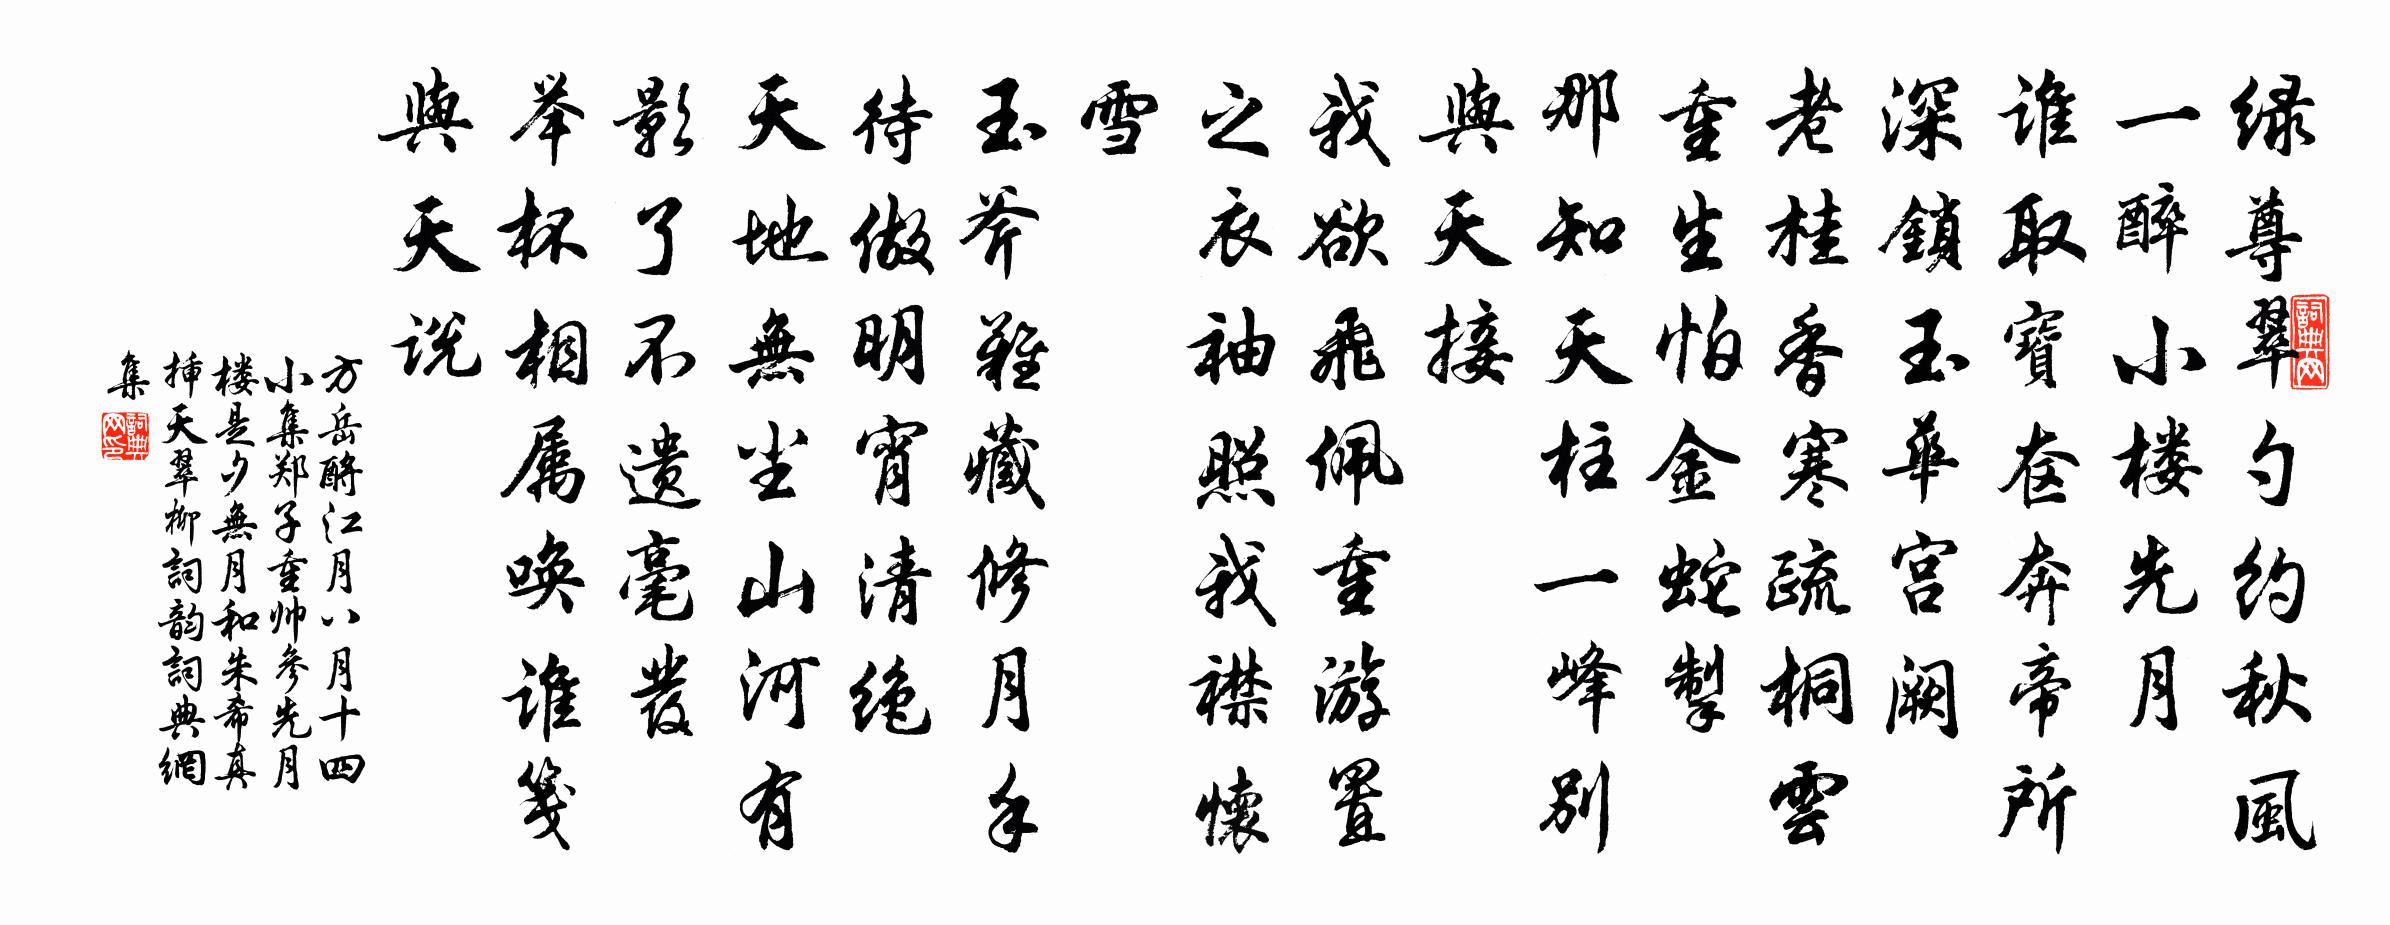 绿尊翠勺约秋風
一醉小楼先月
谁取寶奁奔帝所
深鎖玉華宫阙
老桂香寒疏桐雲
重生怕金蛇掣
那知天柱一峰别
與天接
我欲飛佩重游置
之衣袖照我襟懷
雪
玉斧難藏修月手
待做明宵清绝
天地無尘山河有
影了不遗毫發
举杯相属唤谁笺
與天说
方岳酹江月八月十四
小集郑子重帅參先月
楼是夕無月和朱希真
插天翠柳詞韵詞典網
集
詞典网
詞典网印